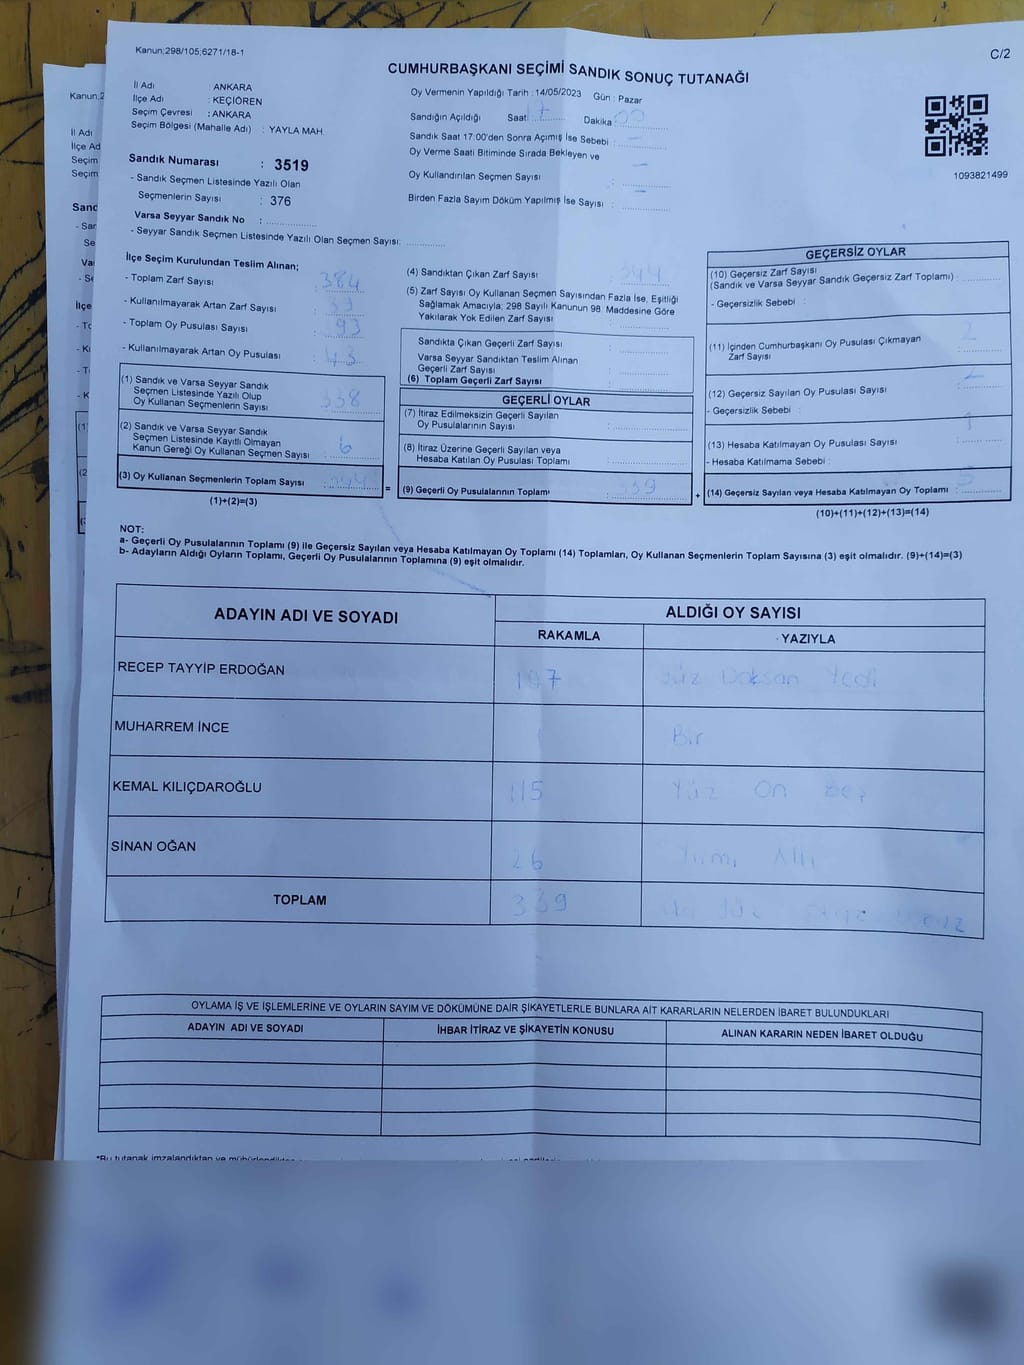 Kanun;298/105;6271/18-1
C/2
CUMHURBAŞKANI SEÇİMİ SANDIK SONUÇ TUTANAĞI
İl Adı : ANKARA
İlçe Adı : KEÇİÖREN
Seçim Çevresi : ANKARA
Seçim Bölgesi (Mahalle Adı) : YAYLA MAH.
Sandık Numarası : 3519
- Sandık Seçmen Listesinde Yazılı Olan
Seçmenlerin Sayısı : 376
Varsa Seyyar Sandık No :
- Seyyar Sandık Seçmen Listesinde Yazılı Olan Seçmen Sayısı:
Oy Vermenin Yapıldığı Tarih : 14/05/2023 Gün : Pazar
Sandığın Açıldığı Saat 17 Dakika 00
Sandık Saat 17:00'den Sonra Açımış İse Sebebi : -
Oy Verme Saati Bitiminde Sırada Bekleyen ve
Oy Kullandırılan Seçmen Sayısı : -
Birden Fazla Sayım Döküm Yapılmış İse Sayısı : -
1093821499
İlçe Seçim Kurulundan Teslim Alınan;
- Toplam Zarf Sayısı : 384
- Kullanılmayarak Artan Zarf Sayısı :
- Toplam Oy Pusulası Sayısı : 93
- Kullanılmayarak Artan Oy Pusulası : 43
(1) Sandık ve Varsa Seyyar Sandık
Seçmen Listesinde Yazılı Olup
Oy Kullanan Seçmenlerin Sayısı : 338
(2) Sandık ve Varsa Seyyar Sandık
Seçmen Listesinde Kayıtlı Olmayan
Kanun Gereği Oy Kullanan Seçmen Sayısı : 6
(3) Oy Kullanan Seçmenlerin Toplam Sayısı : 344
(1)+(2)=(3)
=
(4) Sandıktan Çıkan Zarf Sayısı : 344
(5) Zarf Sayısı Oy Kullanan Seçmen Sayısından Fazla İse, Eşitliği
Sağlamak Amacıyla; 298 Sayılı Kanunun 98. Maddesine Göre
Yakılarak Yok Edilen Zarf Sayısı :
Sandıkta Çıkan Geçerli Zarf Sayısı :
Varsa Seyyar Sandıktan Teslim Alınan
Geçerli Zarf Sayısı :
(6) Toplam Geçerli Zarf Sayısı :
GEÇERLİ OYLAR
(7) İtiraz Edilmeksizin Geçerli Sayılan
Oy Pusulalarının Sayısı :
(8) İtiraz Üzerine Geçerli Sayılan veya
Hesaba Katılan Oy Pusulası Toplamı :
(9) Geçerli Oy Pusulalarının Toplamı : 339
+
GEÇERSİZ OYLAR
(10) Geçersiz Zarf Sayısı
(Sandık ve Varsa Seyyar Sandık Geçersiz Zarf Toplamı) :
- Geçersizlik Sebebi :
(11) İçinden Cumhurbaşkanı Oy Pusulası Çıkmayan
Zarf Sayısı : 2
(12) Geçersiz Sayılan Oy Pusulası Sayısı : 2
- Geçersizlik Sebebi :
(13) Hesaba Katılmayan Oy Pusulası Sayısı : 1
- Hesaba Katılmama Sebebi :
(14) Geçersiz Sayılan veya Hesaba Katılmayan Oy Toplamı : 5
(10)+(11)+(12)+(13)=(14)
NOT:
a- Geçerli Oy Pusulalarının Toplamı (9) ile Geçersiz Sayılan veya Hesaba Katılmayan Oy Toplamı (14) Toplamları, Oy Kullanan Seçmenlerin Toplam Sayısına (3) eşit olmalıdır. (9)+(14)=(3)
b- Adayların Aldığı Oyların Toplamı, Geçerli Oy Pusulalarının Toplamına (9) eşit olmalıdır.
ADAYIN ADI VE SOYADI ALDIĞI OY SAYISI
RAKAMLA YAZIYLA
RECEP TAYYİP ERDOĞAN 197 Yüz Doksan Yedi
MUHARREM İNCE 1 Bir
KEMAL KILIÇDAROĞLU 115 Yüz On Beş
SİNAN OĞAN 26 Yirmi Altı
TOPLAM 339 Üç Yüz Otuz Dokuz
OYLAMA İŞ VE İŞLEMLERİNE VE OYLARIN SAYIM VE DÖKÜMÜNE DAİR ŞİKAYETLERLE BUNLARA AİT KARARLARIN NELERDEN İBARET BULUNDUKLARI
ADAYIN ADI VE SOYADI İHBAR İTİRAZ VE ŞİKAYETİN KONUSU ALINAN KARARIN NEDEN İBARET OLDUĞU
*Bu tutanak imzalandıktan ve mühürlendikten